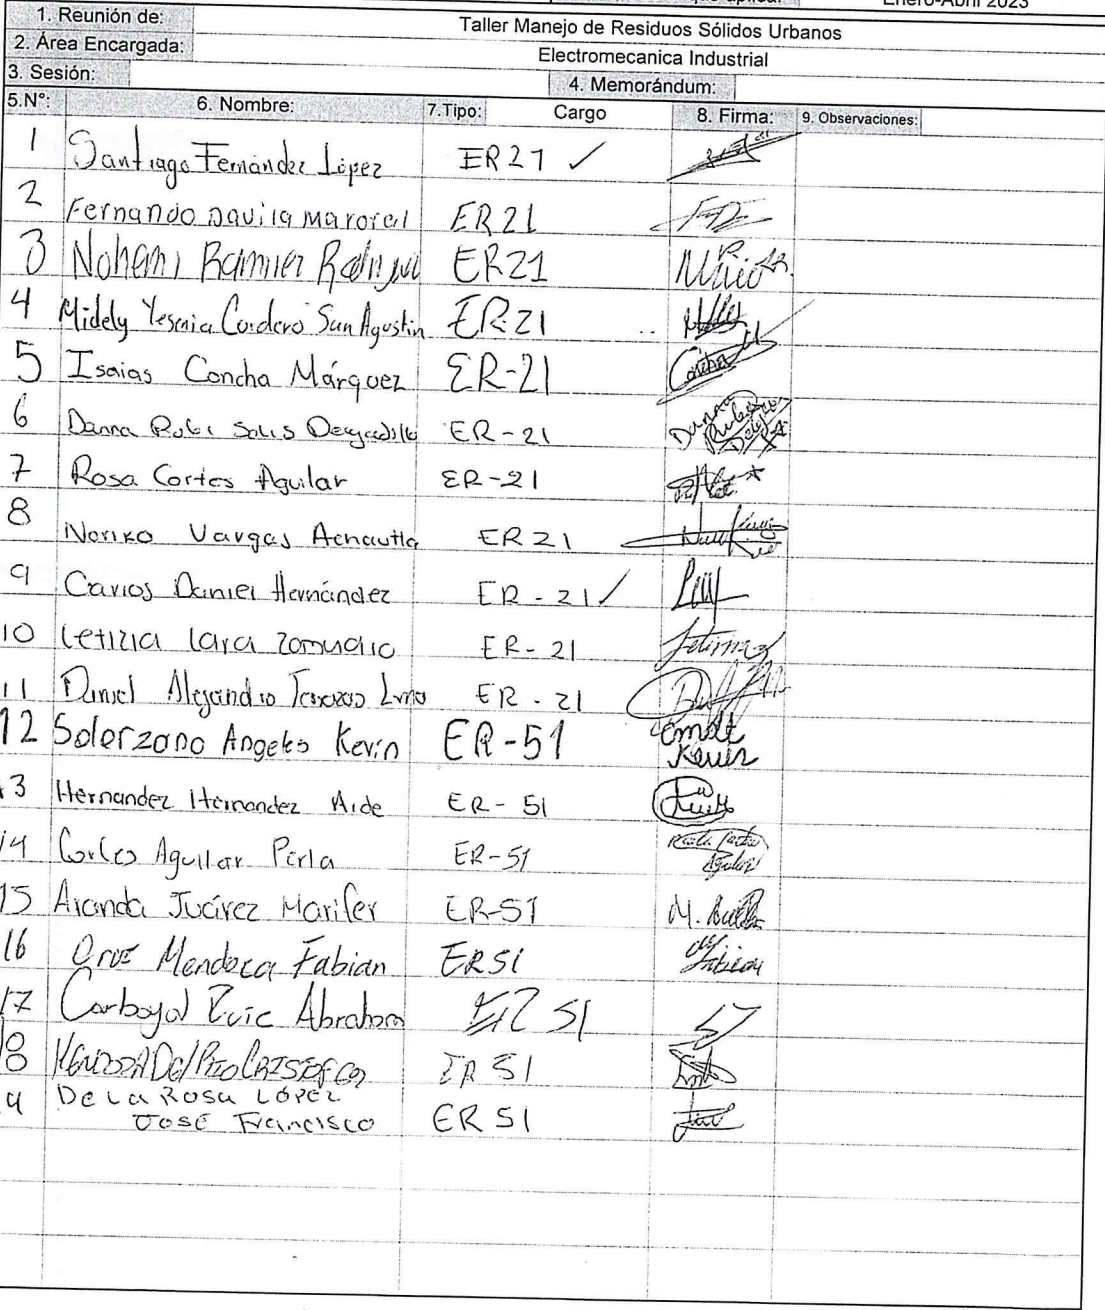 que aplica: Enero-Abril 2023
1. Reunión de: Taller Manejo de Residuos Sólidos Urbanos
2. Área Encargada: Electromecanica Industrial
3. Sesión: 4. Memorándum:
5.N°: 6. Nombre: 7.Tipo: Cargo 8. Firma: 9. Observaciones:
1 Santiago Fernández López ER21 ✓
2 Fernando Davila ER21
3 Nohemi Ramirez ER21
4 Midely Yesenia Cordero San Agustin ER21
5 Isaias Concha Márquez ER-21 Concha
6 Danna Rubi Solis Delgadillo ER-21 Danna
7 Rosa Cortes Aguilar ER-21
8 Noriko Vargas ER21
9 Carlos Daniel Hernández ER-21 ✓
10 Letizia Lara Zamudio ER-21
11 Daniel Alejandro ER-21
12 Solorzano Angeles Kevin ER-51 Kevin
13 Hernandez Hernandez Aide ER-51
14 Cortes Aguilar Perla ER-51
15 Aranda Juárez Marifer ER-51 M.
16 Cruz Mendoza Fabian ER51 Fabian
17 Abraham ER 51
18 ER 51
9 De La Rosa López
José Francisco ER 51